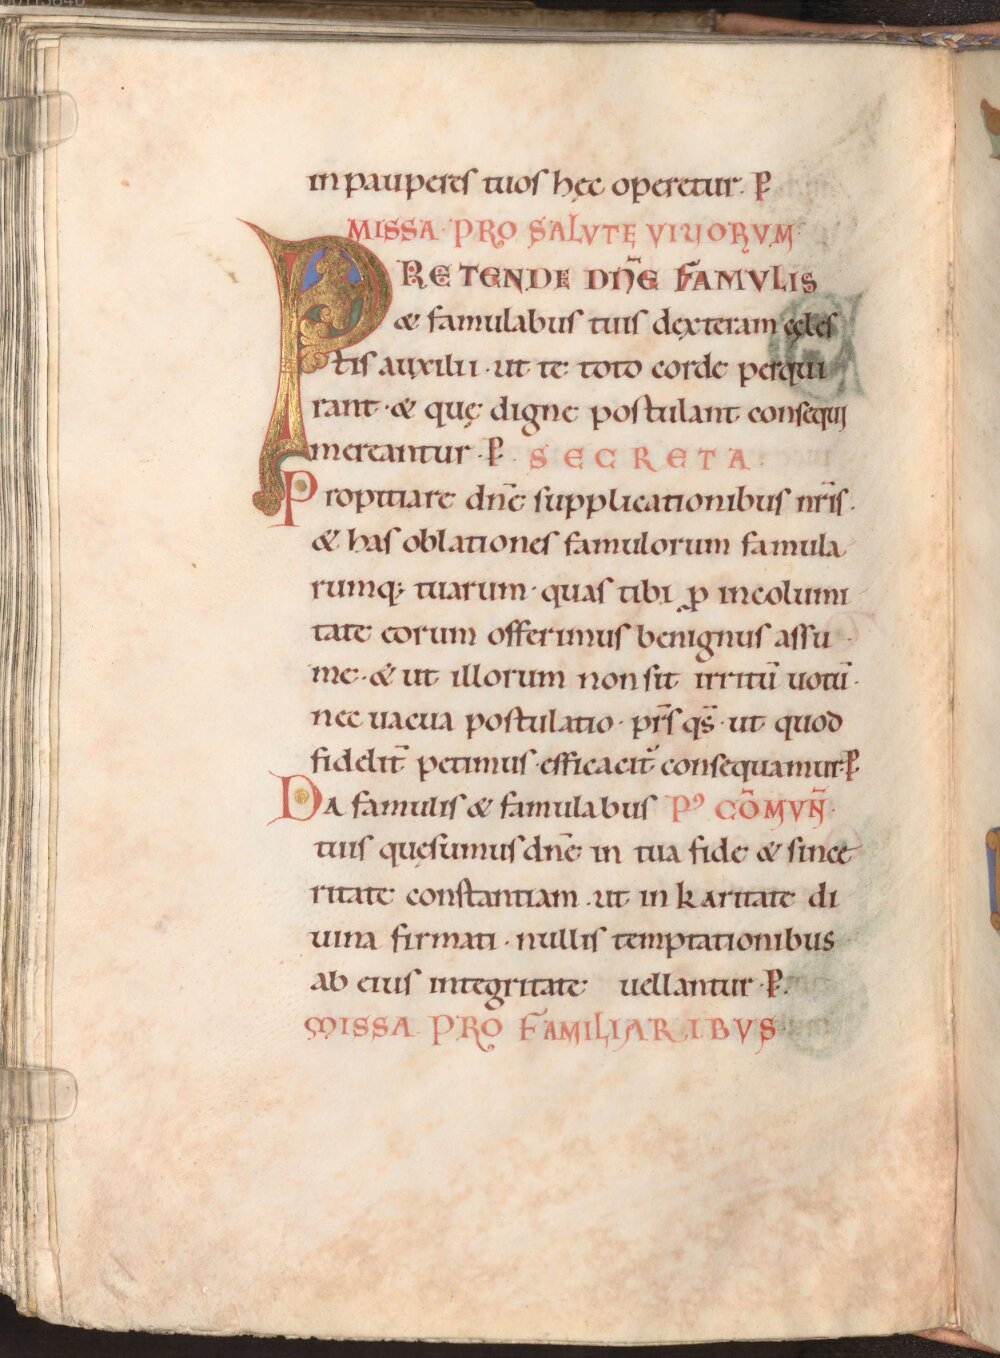 in pauperes tuos hęc operetur. P̄
MISSA PRO SALVTE VIVORVM
PRETENDE DN̄E FAMVLIS
& famulabus tuis dexteram cęles
tis auxilii · ut te toto corde perqui
rant · & quę digne postulant consequi
mereantur · P̄ SECRETA
Propitiare dn̄e supplicationibus nr̄is ·
& has oblationes famulorum famula
rumq; tuarum · quas tibi ꝓ incolumi
tate eorum offerimus benignus assu
me · & ut illorum non sit irritū uotū ·
nec uacua postulatio · pr̄s qs̄ · ut quod
fidelit̄ petimus · efficacit̄ consequamur · P̄
Da famulis & famulabus Pꝰ COM̄VN̄
tuis quęsumus dn̄e in tua fide & since
ritate constantiam · ut in karitate di
uina firmati · nullis temptationibus
ab eius integritate uellantur · P̄.
MISSA PRO FAMILIARIBVS